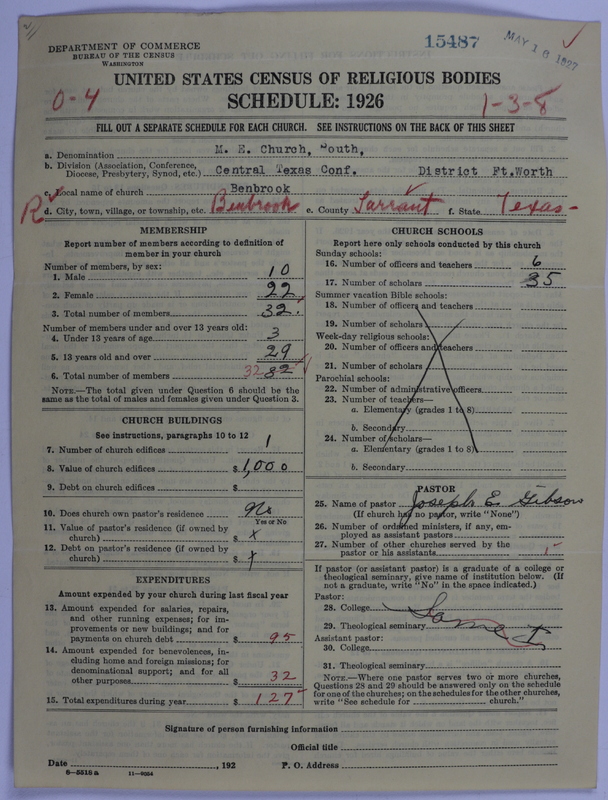 DEPARTMENT OF COMMERCE
BUREAU OF THE CENSUS
WASHINGTON
15487
MAY 16 1927
UNITED STATES CENSUS OF RELIGIOUS BODIES
SCHEDULE: 1926
0-4
1-3-8
FILL OUT A SEPARATE SCHEDULE FOR EACH CHURCH. SEE INSTRUCTIONS ON THE BACK OF THIS SHEET
a. Denomination M. E. Church, South,
b. Division (Association, Conference, Diocese, Presbytery, Synod, etc.) Central Texas Conf. District Ft.Worth
c. Local name of church Benbrook
R d. City, town, village, or township, etc. Benbrook e. County Tarrant f. State Texas-
MEMBERSHIP
Report number of members according to definition of
member in your church
Number of members, by sex:
1. Male 10
2. Female 22
3. Total number of members 32
Number of members under and over 13 years old:
4. Under 13 years of age 3
5. 13 years old and over 29
6. Total number of members 32 82
NOTE.—The total given under Question 6 should be the
same as the total of males and females given under Question 3.
CHURCH BUILDINGS
See instructions, paragraphs 10 to 12
7. Number of church edifices 1
8. Value of church edifices $ 1,000
9. Debt on church edifices $
10. Does church own pastor's residence No
Yes or No
11. Value of pastor's residence (if owned by
church) $ x
12. Debt on pastor's residence (if owned by
church) $ x
EXPENDITURES
Amount expended by church during last fiscal year
13. Amount expended for salaries, repairs,
and other running expenses; for im-
provements or new buildings; and for
payments on church debt $ 95
14. Amount expended for benevolences, in-
cluding home and foreign missions; for
denominational support; and for all
other purposes $ 32
15. Total expenditures during year $ 127
CHURCH SCHOOLS
Report here only schools conducted by this church
Sunday schools:
16. Number of officers and teachers 6
17. Number of scholars 35
Summer vacation Bible schools:
18. Number of officers and teachers
19. Number of scholars
Week-day religious schools:
20. Number of officers and teachers
21. Number of scholars
Parochial schools:
22. Number of administrative officers
23. Number of teachers—
a. Elementary (grades 1 to 8)
b. Secondary
24. Number of scholars—
a. Elementary (grades 1 to 8)
b. Secondary
PASTOR
25. Name of pastor Joseph E. Gibson
(If church has no pastor, write "None")
26. Number of ordained ministers, if any, em-
ployed as assistant pastors
27. Number of other churches served by the
pastor or his assistants 1
If pastor (or assistant pastor) is a graduate of a college or
theological seminary, give name of institution below. (If
not a graduate, write "No" in the space indicated.)
Pastor:
28. College
29. Theological seminary
Assistant pastor:
30. College
31. Theological seminary
NOTE.—Where one pastor serves two or more churches,
Questions 28 and 29 should be answered only on the schedule
for one of the churches; on the schedules for the other churches,
write "See schedule for church."
Signature of person furnishing information
Official title
Date , 192 P. O. Address
8—5518 a 11—9354